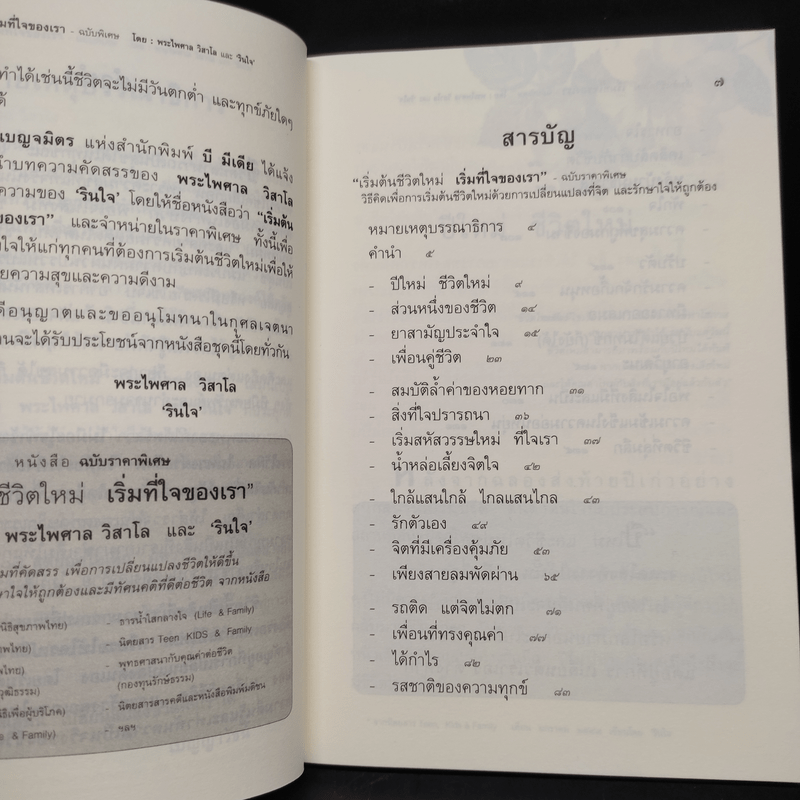 ริ่มที่ใจของเรา - ฉบับพิเศษ โดย : พระไพศาล วิสาโล และ 'รินใจ'
ทำได้เช่นนี้ชีวิตจะไม่มีวันตกต่ำ และทุกข์ภัยใดๆ
ด้
เบญจมิตร แห่งสำนักพิมพ์ บี มีเดีย ได้แจ้ง
นำบทความคัดสรรของ พระไพศาล วิสาโล
ความของ 'รินใจ' โดยให้ชื่อหนังสือว่า "เริ่มต้น
ของเรา" และจำหน่ายในราคาพิเศษ ทั้งนี้เพื่อ
ใจให้แก่ทุกคนที่ต้องการเริ่มต้นชีวิตใหม่เพื่อให้
ยความสุขและความดีงาม
ดีอนุญาตและขออนุโมทนาในกุศลเจตนา
านจะได้รับประโยชน์จากหนังสือชุดนี้โดยทั่วกัน
พระไพศาล วิสาโล
'รินใจ'
หนังสือ ฉบับราคาพิเศษ
ชีวิตใหม่ เริ่มที่ใจของเรา"
พระไพศาล วิสาโล และ 'รินใจ'
มที่คัดสรร เพื่อการเปลี่ยนแปลงชีวิตให้ดีขึ้น
ษาใจให้ถูกต้องและมีทัศนคติที่ดีต่อชีวิต จากหนังสือ
นิธิสุขภาพไทย) - ธารน้ำใสกลางใจ (Life & Family)
ภาพไทย) - นิตยสาร Teen KIDS & Family
ไทย) - พุทธศาสนากับคุณค่าต่อชีวิต
วุฒิธรรม) (กองทุนรักษ์ธรรม)
นิธิเพื่อผู้บริโภค) - นิตยสารสารคดีและหนังสือพิมพ์มติชน
e & Family) - ฯลฯ
๗
สารบัญ
"เริ่มต้นชีวิตใหม่ เริ่มที่ใจของเรา" - ฉบับราคาพิเศษ
วิธีคิดเพื่อการเริ่มต้นชีวิตใหม่ด้วยการเปลี่ยนแปลงที่จิต และรักษาใจให้ถูกต้อง
หมายเหตุบรรณาธิการ ๔
คำนำ ๕
- ปีใหม่ ชีวิตใหม่ ๙
- ส่วนหนึ่งของชีวิต ๑๔
- ยาสามัญประจำใจ ๑๕
- เพื่อนคู่ชีวิต ๒๓
- สมบัติล้ำค่าของหอยทาก ๓๑
- สิ่งที่ใจปรารถนา ๓๖
- เริ่มสหัสวรรษใหม่ ที่ใจเรา ๓๗
- น้ำหล่อเลี้ยงจิตใจ ๔๒
- ใกล้แสนใกล้ ไกลแสนไกล ๔๓
- รักตัวเอง ๔๙
- จิตที่มีเครื่องคุ้มภัย ๕๓
- เพียงสายลมพัดผ่าน ๖๕
- รถติด แต่จิตไม่ตก ๗๑
- เพื่อนที่ทรงคุณค่า ๗๗
- ได้กำไร ๘๒
- รสชาติของความทุกข์ ๘๓